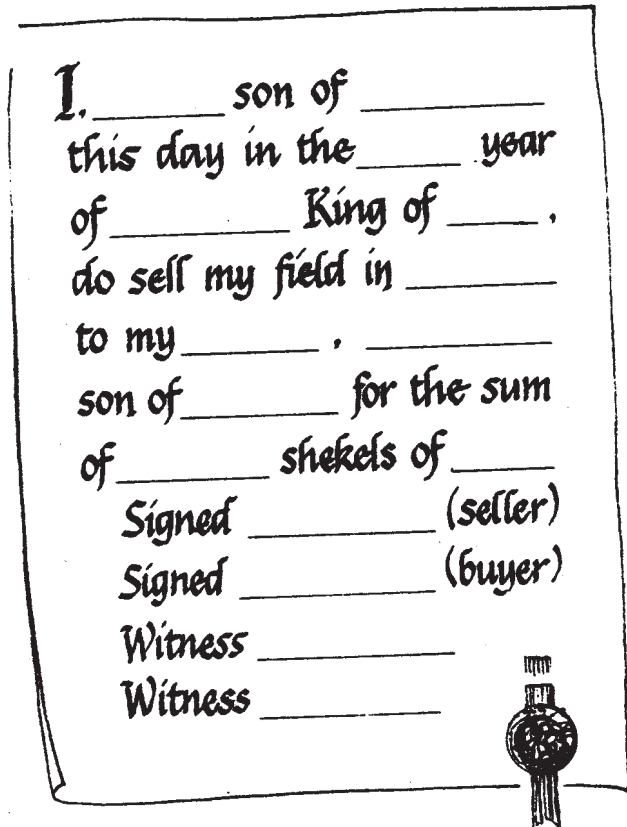 I, ________ son of ____________
this day in the_______ year
of ____________ King of ______ ,
do sell my field in __________
to my _________ , ____________
son of __________ for the sum
of __________ shekels of _______
Signed ____________ (seller)
Signed ____________ (buyer)
Witness _____________
Witness ____________